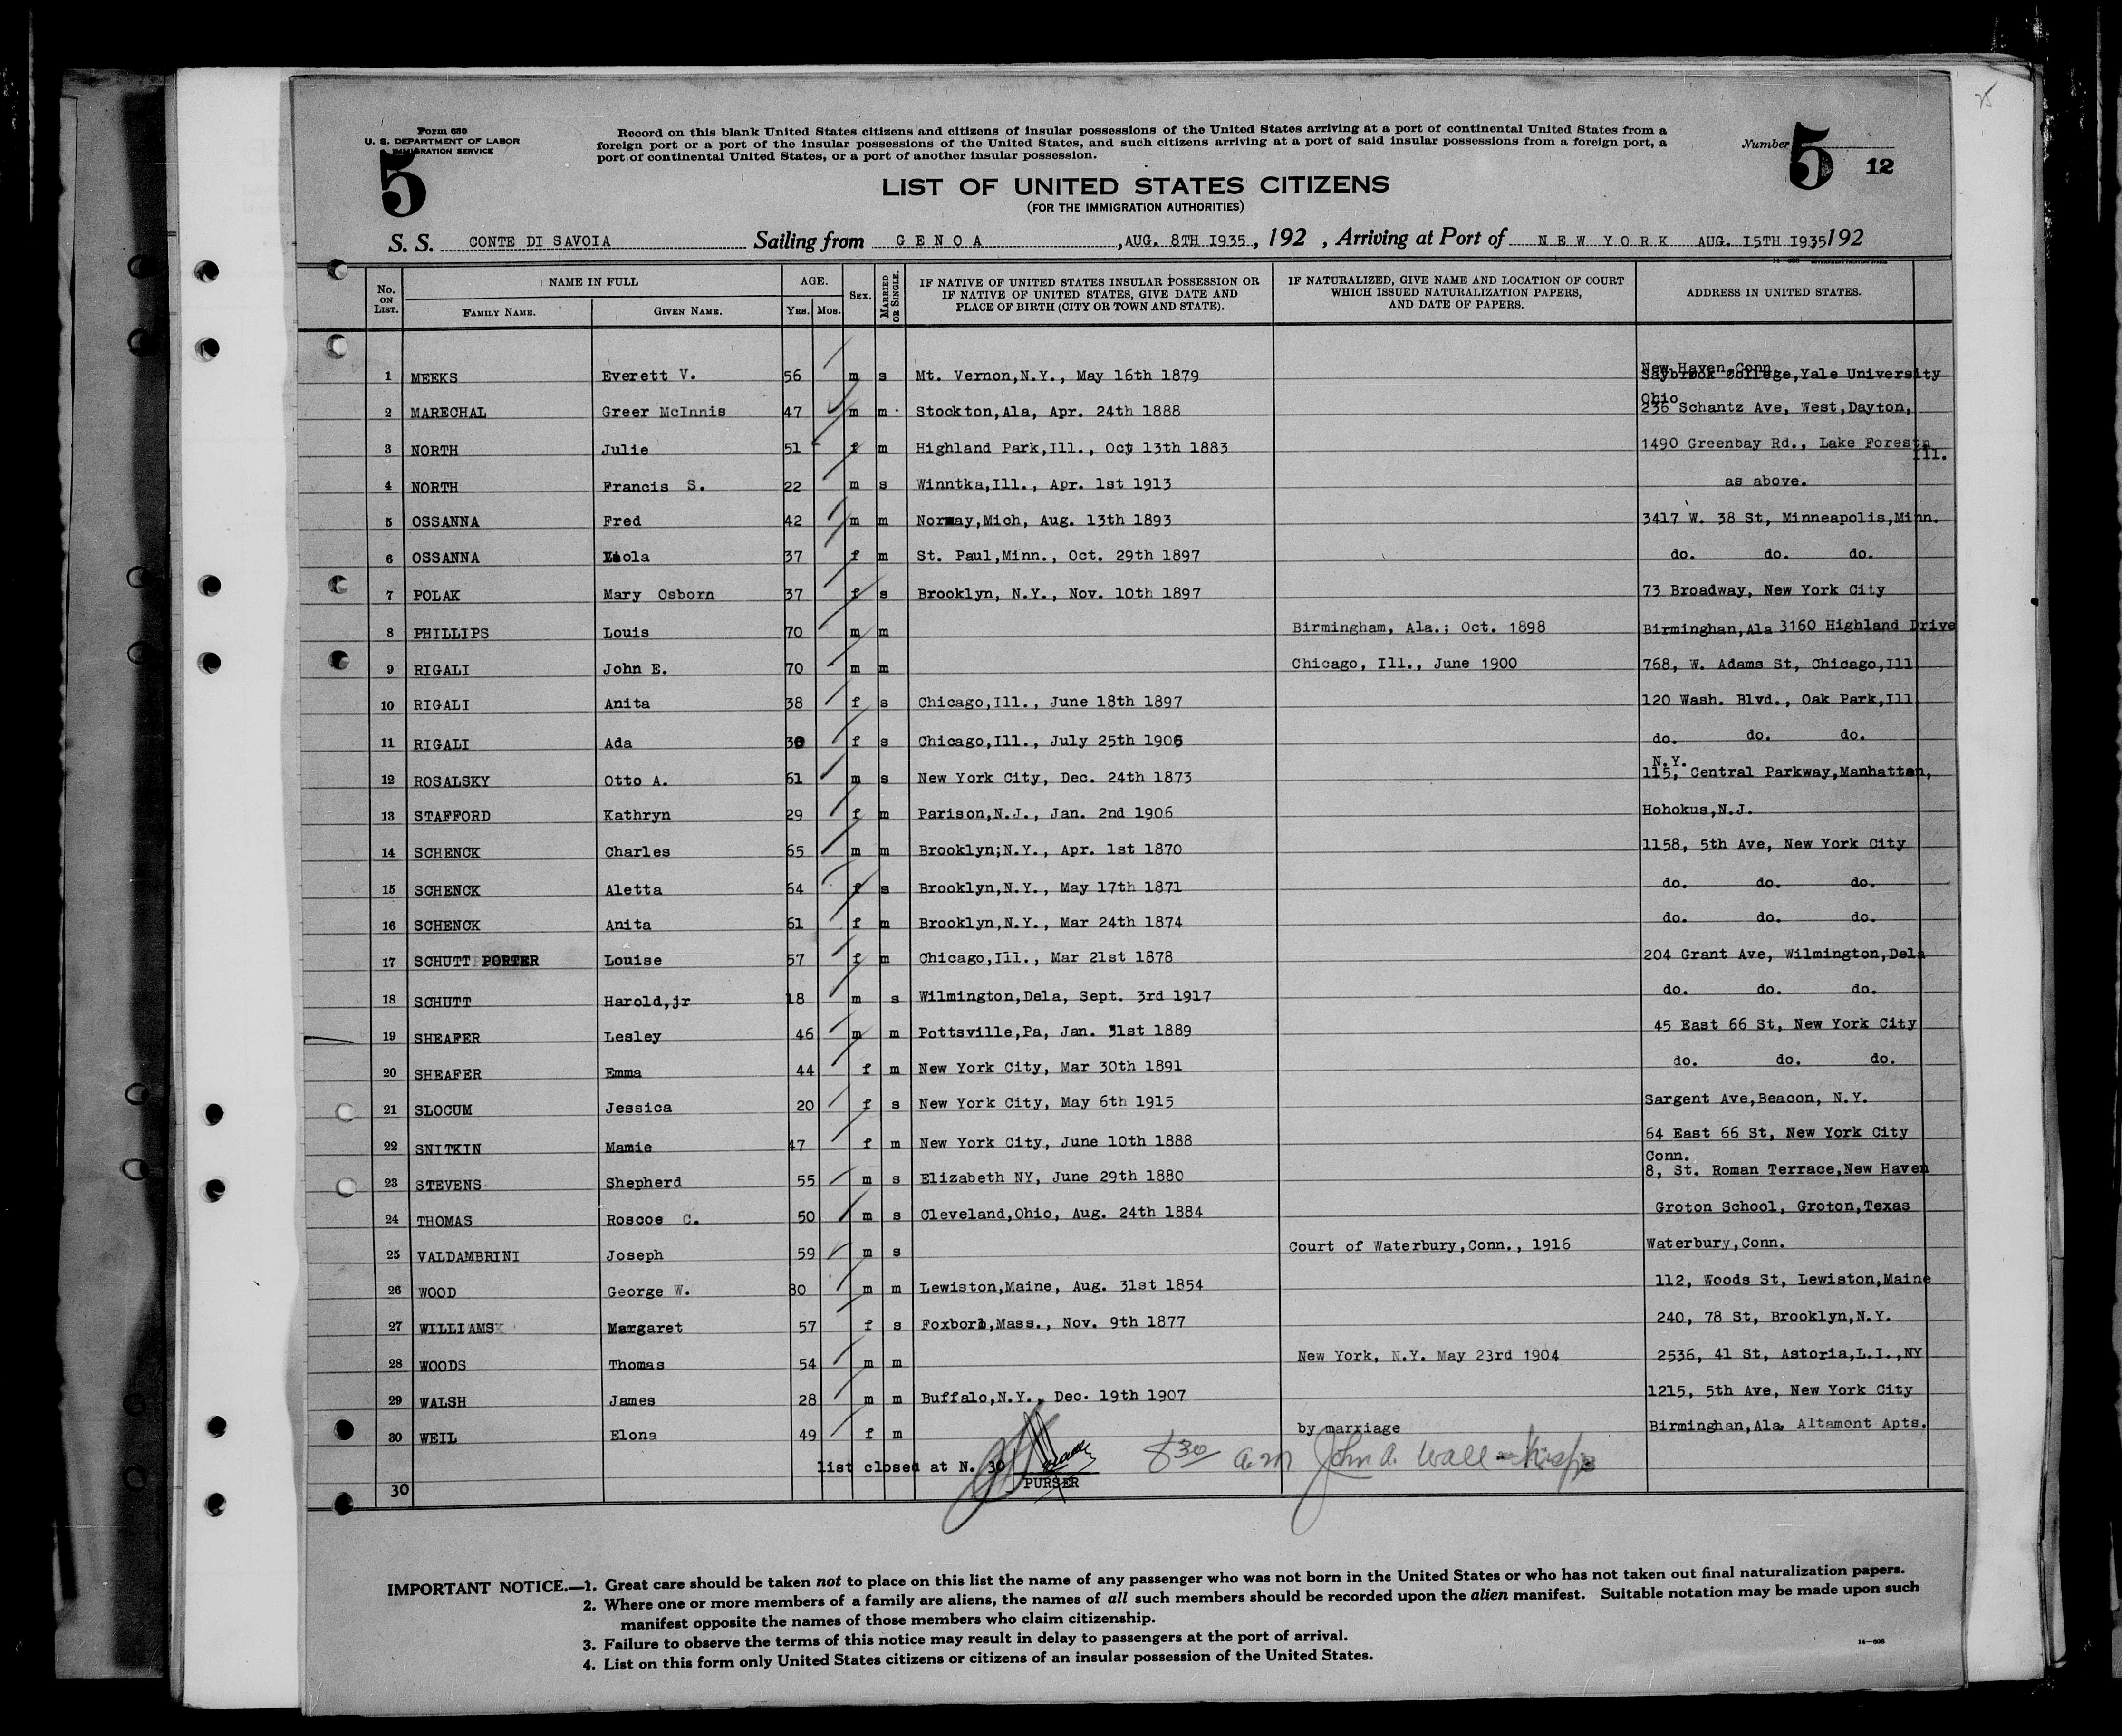 25
Form 630
U. S. DEPARTMENT OF LABOR
IMMIGRATION SERVICE
5
Record on this blank United States citizens and citizens of insular possessions of the United States arriving at a port of continental United States from a
foreign port or a port of the insular possessions of the United States, and such citizens arriving at a port of said insular possessions from a foreign port, a
port of continental United States, or a port of another insular possession.
Number 5 12
LIST OF UNITED STATES CITIZENS
(FOR THE IMMIGRATION AUTHORITIES)
S. S. CONTE DI SAVOIA Sailing from GENOA , AUG. 8TH 1935 , 192 , Arriving at Port of NEW YORK AUG. 15TH 1935 192
No. ON LIST. NAME IN FULL FAMILY NAME. GIVEN NAME. AGE. YRS. MOS. SEX. MARRIED OR SINGLE. IF NATIVE OF UNITED STATES INSULAR POSSESSION OR IF NATIVE OF UNITED STATES, GIVE DATE AND PLACE OF BIRTH (CITY OR TOWN AND STATE). IF NATURALIZED, GIVE NAME AND LOCATION OF COURT WHICH ISSUED NATURALIZATION PAPERS, AND DATE OF PAPERS. ADDRESS IN UNITED STATES.
New Haven,Conn
1 MEEKS Everett V. 56 m s Mt. Vernon,N.Y., May 16th 1879 Saybrook College,Yale University
Ohio
2 MARECHAL Greer McInnis 47 m m Stockton,Ala, Apr. 24th 1888 236 Schantz Ave, West,Dayton,
3 NORTH Julie 51 f m Highland Park,Ill., Oct 13th 1883 1490 Greenbay Rd., Lake Forest,
Ill.
4 NORTH Francis S. 22 m s Winntka,Ill., Apr. 1st 1913 as above.
5 OSSANNA Fred 42 m m Norway,Mich, Aug. 13th 1893 3417 W. 38 St, Minneapolis,Minn.
6 OSSANNA Viola 37 f m St. Paul,Minn., Oct. 29th 1897 do. do. do.
7 POLAK Mary Osborn 37 f s Brooklyn, N.Y., Nov. 10th 1897 73 Broadway, New York City
8 PHILLIPS Louis 70 m m Birmingham, Ala.; Oct. 1898 Birminghan,Ala 3160 Highland Drive
9 RIGALI John E. 70 m m Chicago, Ill., June 1900 768, W. Adams St, Chicago,Ill
10 RIGALI Anita 38 f s Chicago,Ill., June 18th 1897 120 Wash. Blvd., Oak Park,Ill
11 RIGALI Ada 30 f s Chicago,Ill., July 25th 1905 do. do. do.
N.Y.
12 ROSALSKY Otto A. 61 m s New York City, Dec. 24th 1873 115, Central Parkway,Manhattan,
13 STAFFORD Kathryn 29 f m Parison,N.J., Jan. 2nd 1906 Hohokus,N.J.
14 SCHENCK Charles 65 m m Brooklyn;N.Y., Apr. 1st 1870 1158, 5th Ave, New York City
15 SCHENCK Aletta 64 f s Brooklyn,N.Y., May 17th 1871 do. do. do.
16 SCHENCK Anita 61 f m Brooklyn,N.Y., Mar 24th 1874 do. do. do.
17 SCHUTT PORTER Louise 57 f m Chicago,Ill., Mar 21st 1878 204 Grant Ave, Wilmington,Dela
18 SCHUTT Harold,jr 18 m s Wilmington,Dela, Sept. 3rd 1917 do. do. do.
19 SHEAFER Lesley 46 m m Pottsville,Pa, Jan. 31st 1889 45 East 66 St, New York City
20 SHEAFER Emma 44 f m New York City, Mar 30th 1891 do. do. do.
21 SLOCUM Jessica 20 f s New York City, May 6th 1915 Sargent Ave,Beacon, N.Y.
22 SNITKIN Mamie 47 f m New York City, June 10th 1888 64 East 66 St, New York City
Conn.
23 STEVENS Shepherd 55 m s Elizabeth NY, June 29th 1880 8, St. Roman Terrace,New Haven
24 THOMAS Roscoe C. 50 m s Cleveland,Ohio, Aug. 24th 1884 Groton School, Groton,Texas
25 VALDAMBRINI Joseph 59 m s Court of Waterbury,Conn., 1916 Waterbury,Conn.
26 WOOD George W. 80 m m Lewiston,Maine, Aug. 31st 1854 112, Woods St, Lewiston,Maine
27 WILLIAMS Margaret 57 f s Foxboro,Mass., Nov. 9th 1877 240, 78 St, Brooklyn,N.Y.
28 WOODS Thomas 54 m m New York, N.Y. May 23rd 1904 2536, 41 St, Astoria,L.I.,NY
29 WALSH James 28 m m Buffalo,N.Y., Dec. 19th 1907 1215, 5th Ave, New York City
30 WEIL Elona 49 f m by marriage Birminghan,Ala. Altamont Apts.
list closed at N. 30 8 30 a.m John A. Wall
PURSER
30
IMPORTANT NOTICE.—1. Great care should be taken not to place on this list the name of any passenger who was not born in the United States or who has not taken out final naturalization papers.
2. Where one or more members of a family are aliens, the names of all such members should be recorded upon the alien manifest. Suitable notation may be made upon such
manifest opposite the names of those members who claim citizenship.
3. Failure to observe the terms of this notice may result in delay to passengers at the port of arrival.
4. List on this form only United States citizens or citizens of an insular possession of the United States.
14—608